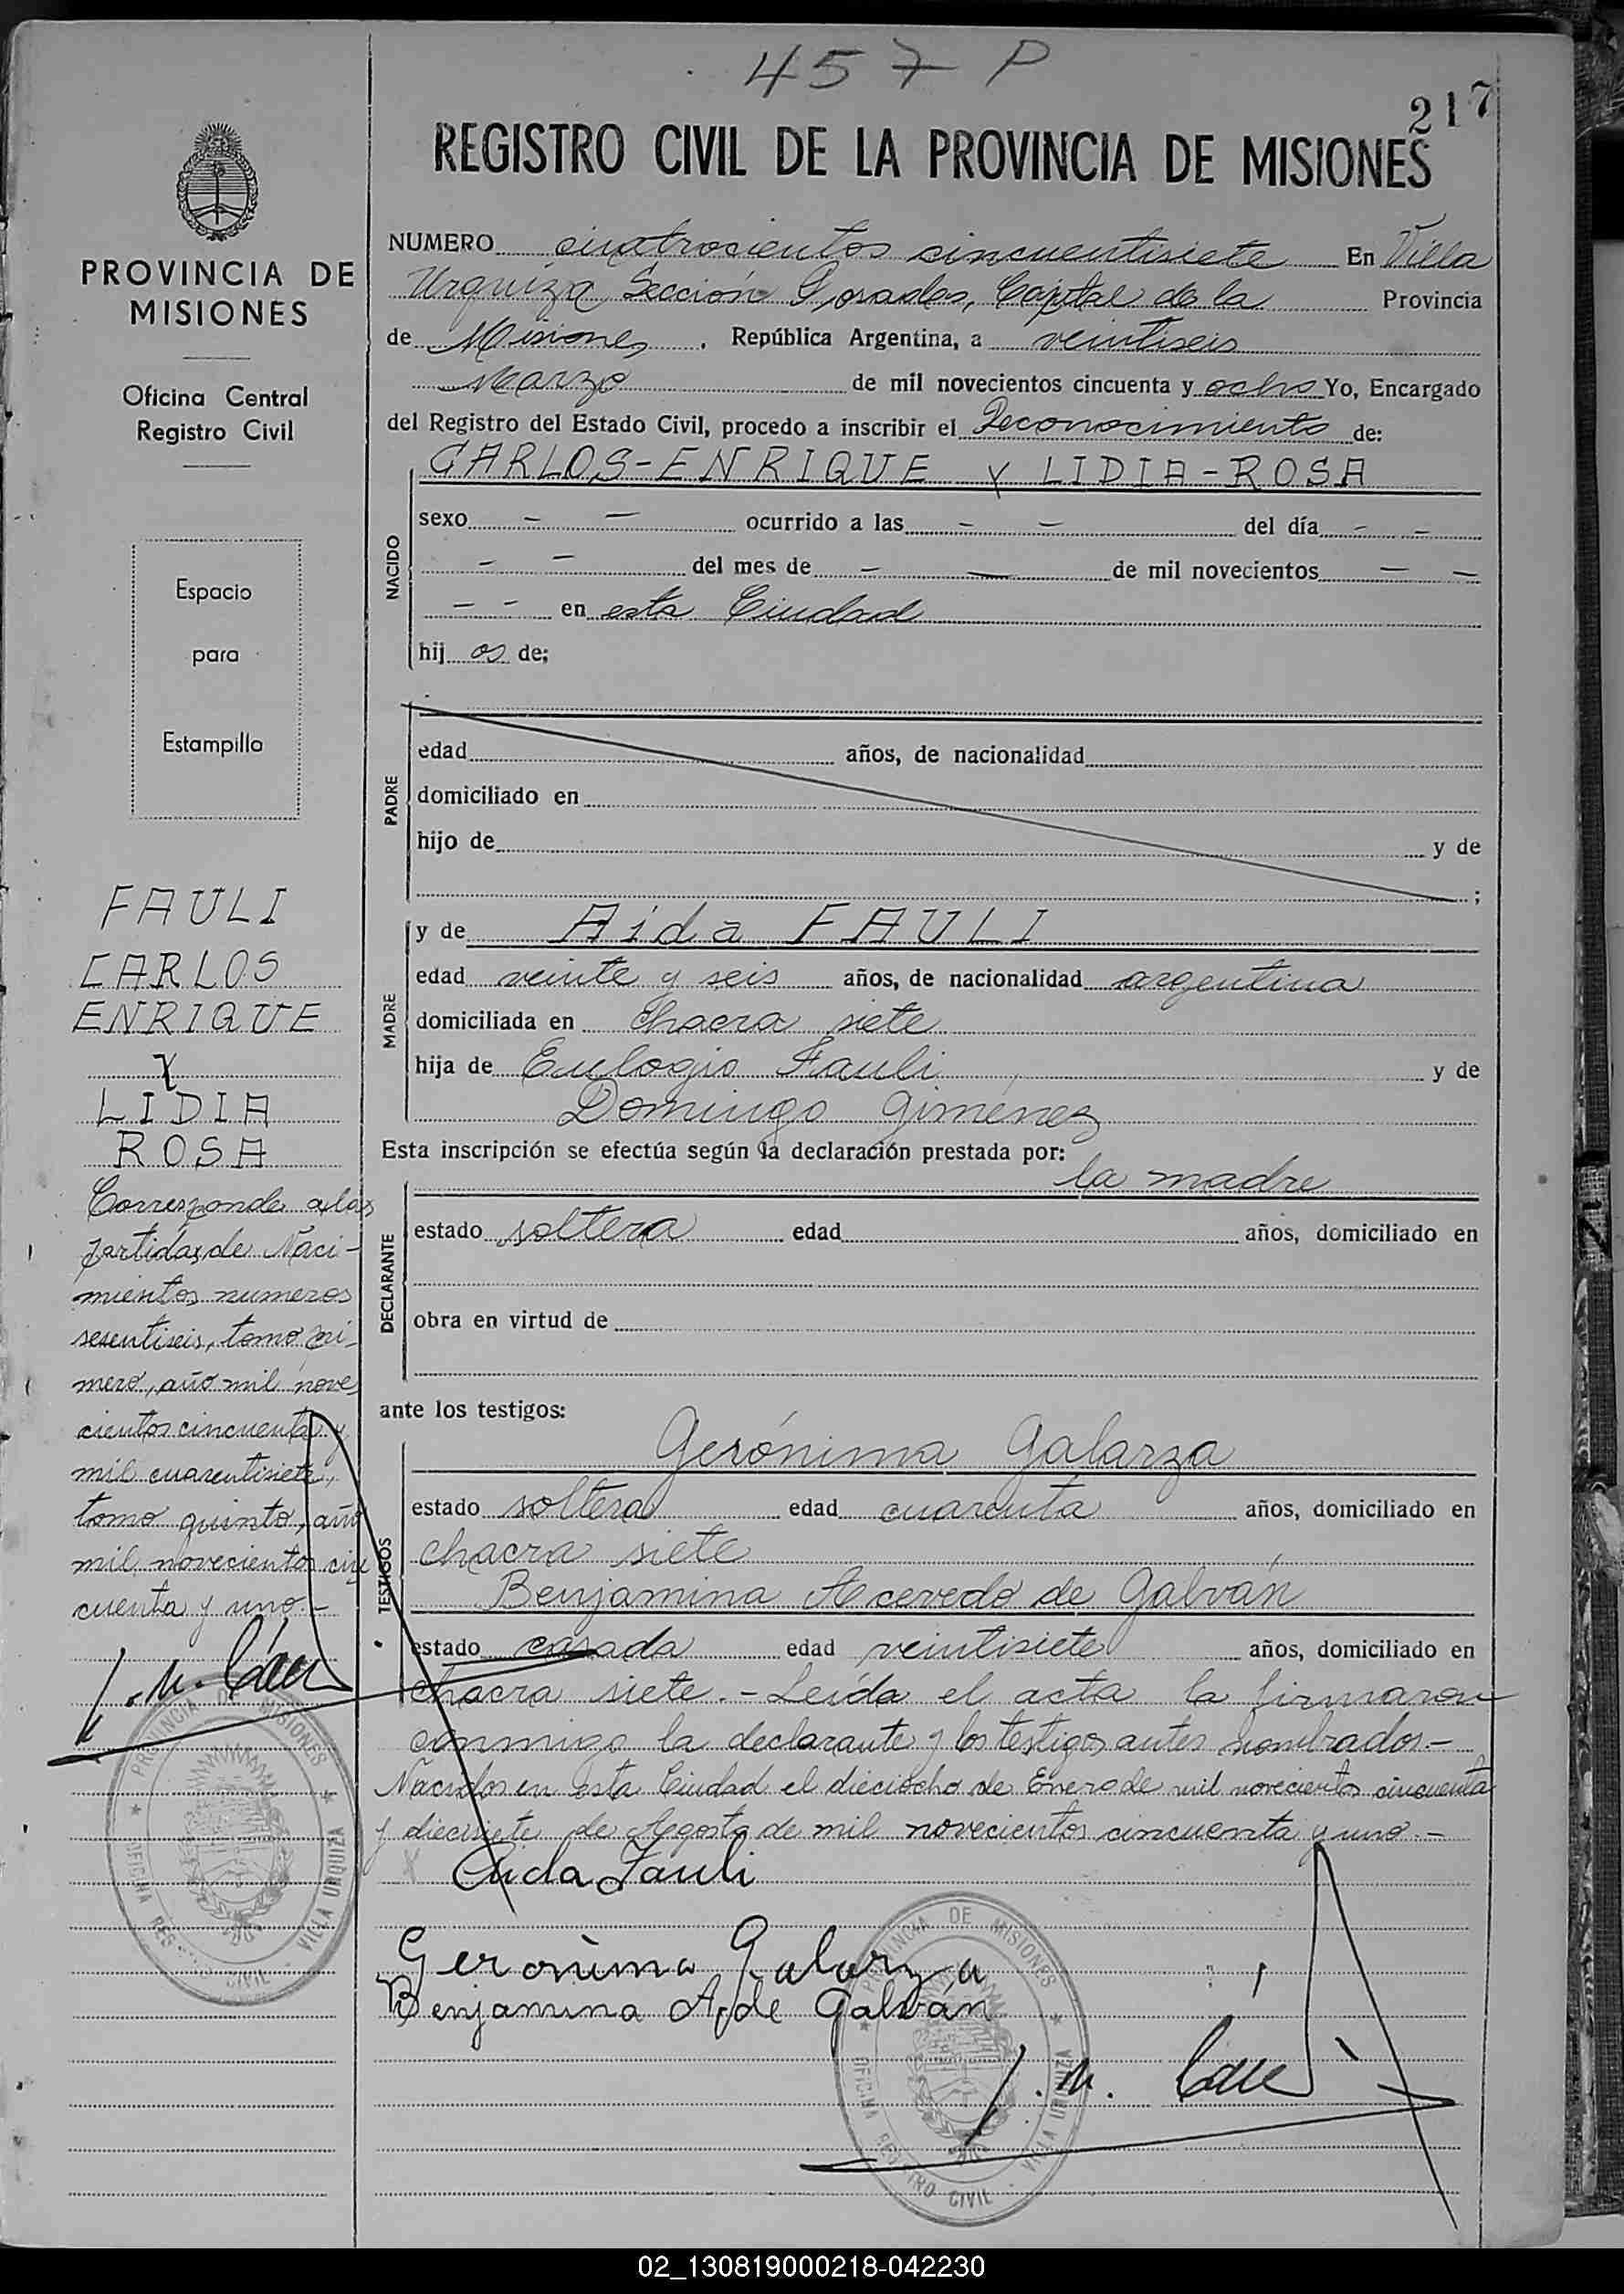 457 P
217
REGISTRO CIVIL DE LA PROVINCIA DE MISIONES
PROVINCIA DE
MISIONES
Oficina Central
Registro Civil
Espacio
para
Estampilla
FAULI
CARLOS
ENRIQUE
Y
LIDIA
ROSA
Corresponde a las
partidas de Naci-
mientos numeros
sesentiseis, tomo pri-
mero, año mil nove
cientos cincuenta y
mil cuarentisiete,
tomo quinto, año
mil novecientos cin
cuenta y uno.-
PROVINCIA DE MISIONES
OFICINA REGISTRO CIVIL - VILLA URQUIZA
NUMERO cuatrocientos cincuentisiete En Villa
Urquiza Sección Posadas, Capital de la Provincia
de Misiones . República Argentina, a veintiseis
Marzo de mil novecientos cincuenta y ocho Yo, Encargado
del Registro del Estado Civil, procedo a inscribir el Reconocimiento de:
CARLOS-ENRIQUE Y LIDIA-ROSA
NACIDO
sexo - - ocurrido a las - - del día - -
- - del mes de - - de mil novecientos - -
- - en esta Ciudad
hij os de;
PADRE
edad años, de nacionalidad
domiciliado en
hijo de y de
;
MADRE
y de Aida FAULI
edad veinte y seis años, de nacionalidad argentina
domiciliada en Chacra siete
hija de Eulogio Fauli y de
Domingo Giménez
Esta inscripción se efectúa según la declaración prestada por:
la madre
DECLARANTE
estado soltera edad años, domiciliado en
obra en virtud de
ante los testigos:
TESTIGOS
Gerónima Galarza
estado soltera edad cuarenta años, domiciliado en
chacra siete
Benjamina Acevedo de Galván
estado casada edad veintisiete años, domiciliado en
chacra siete.- Leída el acta la firmaron
conmigo la declarante y los testigos antes nombrados.-
Nacidos en esta Ciudad el dieciocho de Enero de mil novecientos cincuenta
y diecisiete de Agosto de mil novecientos cincuenta y uno.-
Aida Fauli
Gerónima Galarza
Benjamina A. de Galván
PROVINCIA DE MISIONES
OFICINA REGISTRO CIVIL - VILLA URQUIZA
02_130819000218-042230